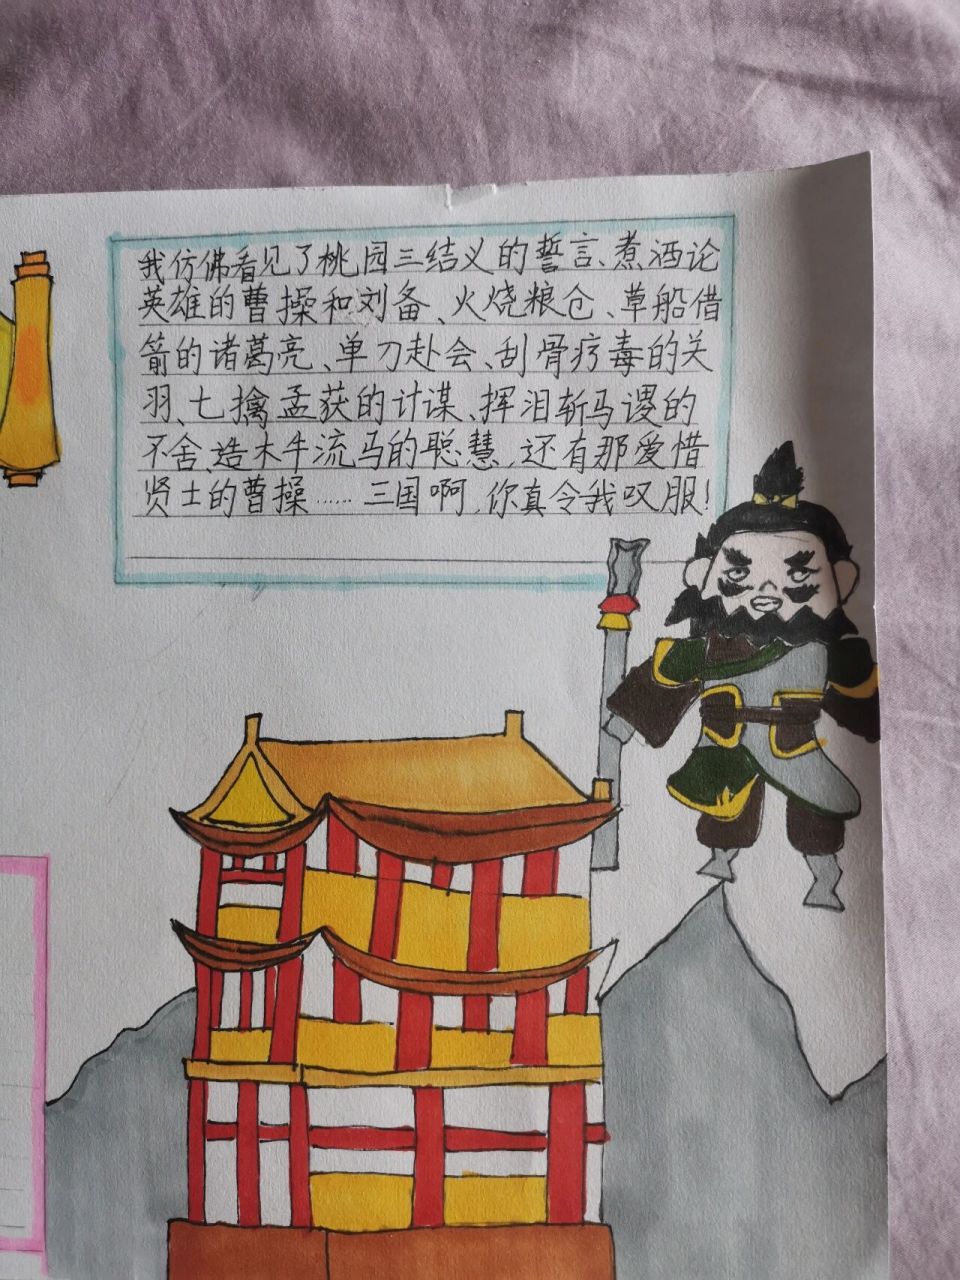 我仿佛看见了桃园三结义的誓言、煮酒论
英雄的曹操和刘备、火烧粮仓、草船借
箭的诸葛亮、单刀赴会、刮骨疗毒的关
羽、七擒孟获的计谋、挥泪斩马谡的
不舍、造木牛流马的聪慧,还有那爱惜
贤士的曹操……三国啊,你真令我叹服!